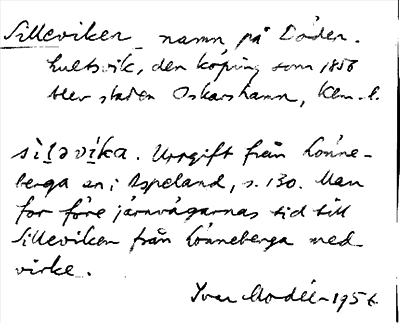 Silleviken, namn på Döder-
hultsvik, den köping som 1856
blev staden Oskarshamn, Klm. l.
silǝvika. Uppgift från Lönne-
berga sn i Aspeland, s. 130. Man
for före järnvägarnas tid till
Silleviken från Lönneberga med
virke.
Ivar Modéer 1956.